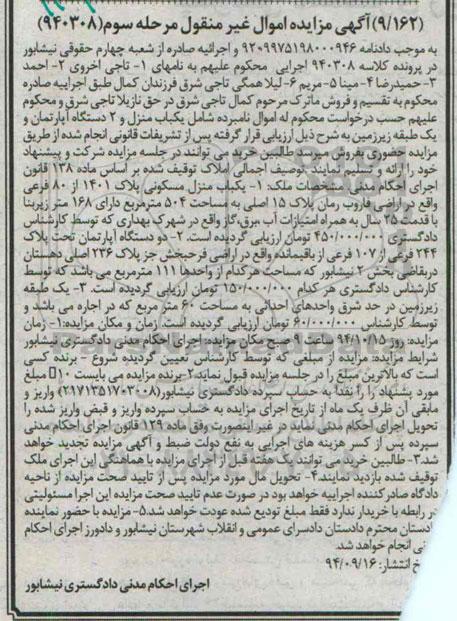 (۹/۱۶۲) آگهی مزایده اموال غیر منقول مرحله سوم (۹۴۰۳۰۸)
به موجب دادنامه ۹۲۰۹۹۷۵۱۹۸۰۰۰۹۴۶ و اجرائیه صادره از شعبه چهارم حقوقی نیشابور
در پرونده کلاسه ۹۴۰۳۰۸ اجرایی محکوم علیهم به نامهای ۱- تاجی اخروی ۲- احمد
۳- حمیدرضا ۴- مینا ۵- مریم ۶- لیلا همگی تاجی شرق فرزندان کمال طبق اجراییه صادره
محکوم به تقسیم و فروش ماترک مرحوم کمال تاجی شرق در حق نازیلا تاجی شرق و محکوم
علیهم حسب درخواست محکوم له اموال نامبرده شامل یکباب منزل و ۲ دستگاه آپارتمان و
یک طبقه زیرزمین به شرح ذیل ارزیابی قرار گرفته پس از تشریفات قانونی انجام شده از طریق
مزایده حضوری بفروش میرسد. طالبین خرید می توانند در جلسه مزایده شرکت و پیشنهاد
خود را ارائه و تسلیم نمایند. توصیف اجمالی املاک توقیف شده بر اساس ماده ۱۳۸ قانون
اجرای احکام مدنی: مشخصات ملک: ۱- یکباب منزل مسکونی پلاک ۱۴۰۱ از ۸۰ فرعی
واقع در اراضی فاروب رمان پلاک ۱۵ اصلی به مساحت ۵۰۴ مترمربع دارای ۱۶۸ متر زیربنا
با قدمت ۲۵ سال به همراه امتیازات آب، برق، گاز واقع در شهرک بهداری که توسط کارشناس
دادگستری ۴۵۰/۰۰۰/۰۰۰ تومان ارزیابی گردیده است. ۲- دو دستگاه آپارتمان تحت پلاک
۲۴۴ فرعی از ۱۰۷ فرعی از باقیمانده واقع در اراضی فرحبخش جز پلاک ۲۳۶ اصلی دهستان
دربقاضی بخش ۲ نیشابور که مساحت هرکدام از واحدها ۱۱۱ مترمربع می باشد که توسط
کارشناس دادگستری هر کدام ۱۵۰/۰۰۰/۰۰۰ تومان ارزیابی گردیده است. ۳- یک طبقه
زیرزمین در حد شرق واحدهای احداثی به مساحت ۶۰ متر مربع که در اجاره می باشد و
توسط کارشناس ۶۰/۰۰۰/۰۰۰ تومان ارزیابی گردیده است. زمان و مکان مزایده: ۱- زمان
مزایده: روز ۹۴/۱۰/۱۰ ساعت ۹ صبح مکان مزایده: اجرای احکام مدنی دادگستری نیشابور
شرایط مزایده: مزایده از مبلغی که توسط کارشناس تعیین گردیده شروع - برنده کسی
است که بالاترین مبلغ را در جلسه مزایده قبول نماید ۲- برنده مزایده می بایست ۱۰ مبلغ
مورد پیشنهاد را نقدا به حساب سپرده دادگستری نیشابور (۲۱۷۱۳۵۱۷۰۳۰۰۸) واریز و
مابقی آن ظرف یک ماه از تاریخ اجرای مزایده به حساب سپرده واریز و قبض واریز شده را
تحویل اجرای احکام مدنی نماید در غیر اینصورت وفق ماده ۱۲۹ قانون اجرای احکام مدنی
سپرده پس از کسر هزینه های اجرایی به نفع دولت ضبط و آگهی مزایده تجدید خواهد
شد. ۳- طالبین خرید می توانند یک هفته قبل از اجرای مزایده با هماهنگی این اجرای ملک
توقیف شده بازدید نمایند. ۴- تحویل مال مورد مزایده پس از تایید صحت مزایده از ناحیه
دادگاه صادرکننده اجراییه خواهد بود در صورت عدم تایید صحت مزایده این اجرا مسئولیتی
در رابطه با خریدار ندارد فقط مبلغ تودیع شده عودت خواهد شد. ۵- مزایده با حضور نماینده
دادستان محترم دادستان دادسرای عمومی و انقلاب شهرستان نیشابور و دادورز اجرای احکام
نی انجام خواهد شد.
خ انتشار: ۹۴/۰۹/۱۶
اجرای احکام مدنی دادگستری نیشابور